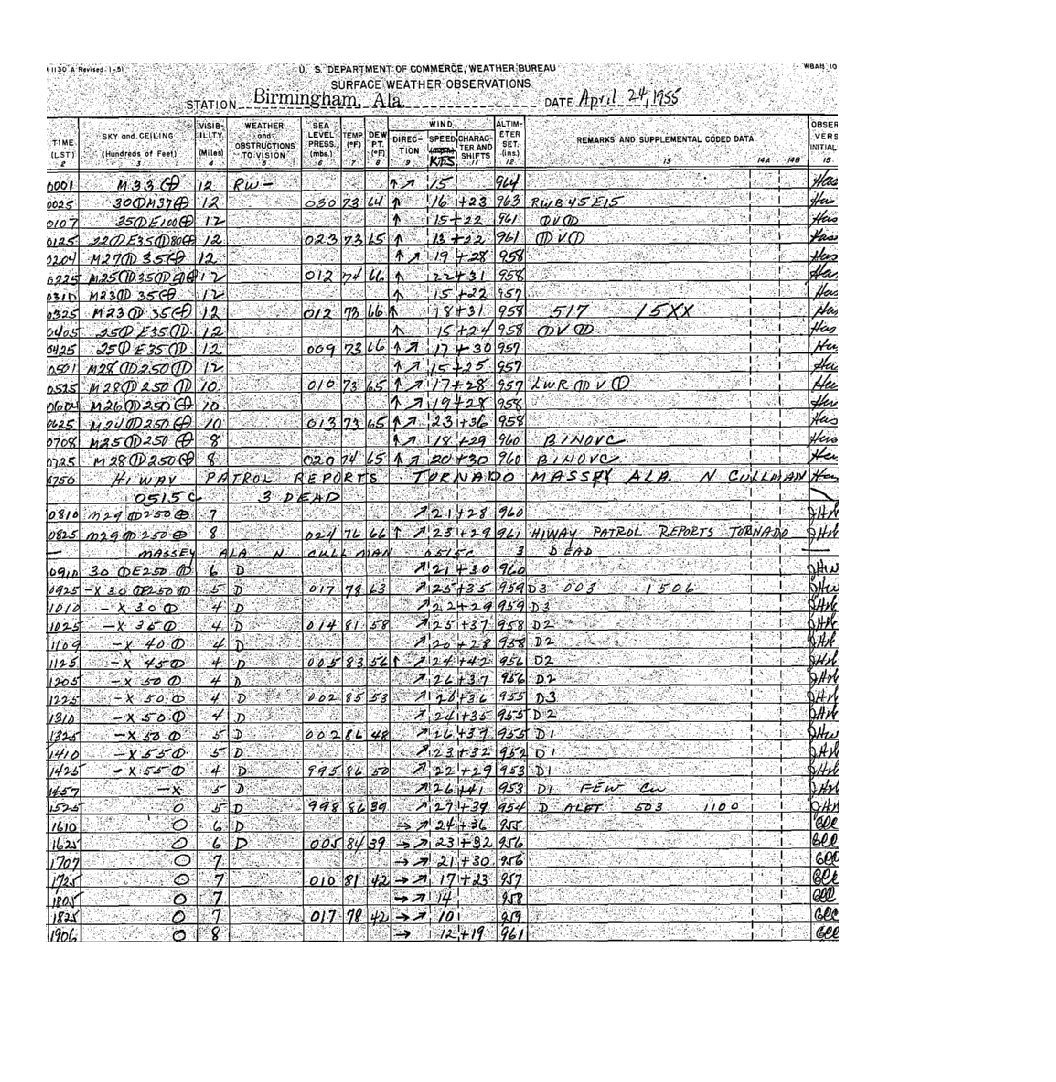 1130 A Revised 1-51 U. S. DEPARTMENT OF COMMERCE, WEATHER BUREAU WBAN 10
SURFACE WEATHER OBSERVATIONS
STATION Birmingham, Ala. DATE April 24, 1955
TIME (LST) SKY and CEILING (Hundreds of Feet) VISIBILITY (Miles) WEATHER and OBSTRUCTIONS TO VISION SEA LEVEL PRESS. (mbs.) TEMP (°F) DEW PT. (°F) WIND DIRECTION SPEED KTS CHARACTER AND SHIFTS ALTIMETER SET. (ins.) REMARKS AND SUPPLEMENTAL CODED DATA OBSERVERS INITIAL
2 3 4 5 6 7 8 9 11 12 13 14A 14B 15
0001 M33⊕ 12 RW- ↑↗ 15 964
0025 30⦶M37⊕ 12 030 73 64 ↑ 16 +23 963 RWB45E15
0107 35⦶E100⊕ 12 ↑ 15+22 961
0125 12 023 73 65 ↑ 13+22 961
0204 M27⦷ 35⊕ 12 ↑↗ 19+28 958
0225 12 012 74 66 ↑ 22+31 958
0310 M23⦷ 35⊕ 12 ↑ 15+22 957
0325 M23⦷ 35⊕ 12 012 73 66 ↑ 18+31 958 517 15XX
0405 25⦶E35⦷ 12 ↑ 15+24 958
0425 25⦶E35⦷ 12 009 73 66 ↑↗ 17+30 957
0501 M28⦷250⦷ 12 ↑↗ 15+25 957
0525 M28⦷250⦷ 10 010 73 65 ↑↗ 17+28 957 LWR ⦷V⦶
0604 M26⦷250⊕ 10 ↑↗ 19+28 958
0625 M24⦷250⊕ 10 013 73 65 ↑↗ 23+36 958
0708 M25⦷250⊕ 8 ↑↗ 18+29 960 BINOVC
0725 M28⦷250⊕ 8 020 74 65 ↑↗ 20+30 960 BINOVC
0750 HIWAY PATROL REPORTS TORNADO MASSEY ALA. N CULLMAN
0515C 3 DEAD
0810 M29⦷250⊕ 7 ↗ 21+28 960
0825 M29⦷250⊕ 8 024 76 66 ↑↗ 23+29 961 HIWAY PATROL REPORTS TORNADO
MASSEY ALA N CULLMAN 0515C 3 DEAD
0910 30⦶E250⦷ 6 D ↗ 21+30 960
0925 -X30⦶E250⦷ 5 D 017 78 63 ↗ 25+35 959 D3 003 1506
1010 -X30⦶ 4 D ↗ 22+29 959 D3
1025 -X35⦶ 4 D 014 81 58 ↗ 25+37 958 D2
1109 -X 40⦶ 4 D ↗ 20+28 958 D2
1125 -X 45⦶ 4 D 005 83 56 ↑↗ 24+42 956 D2
1205 -X 50⦶ 4 D ↗ 26+37 956 D2
1225 -X 50⦶ 4 D 002 85 53 ↗ +36 955 D3
1310 -X50⦶ 4 D ↗ 24+35 955 D2
1325 -X50⦶ 5 D 002 86 48 ↗ 26+39 955 D1
1410 -X55⦶ 5 D ↗ 23+32 952 D1
1425 -X55⦶ 4 D 995 86 50 ↗ 22+29 953 D1
1457 -X 5 D ↗ 26+41 953 D1 FEW Cu
1525 ○ 5 D 998 86 39 ↗ 27+39 954 D ALET 503 1100
1610 ○ 6 D →↗ 24+36 955
1625 ○ 6 D 005 84 39 →↗ 23+32 956
1707 ○ 7 →↗ 21+30 956
1725 ○ 7 010 81 42 →↗ 17+23 957
1805 ○ 7 →↗ 14 958
1825 ○ 7 017 78 42 →↗ 10 959
1906 ○ 8 → 12+19 961